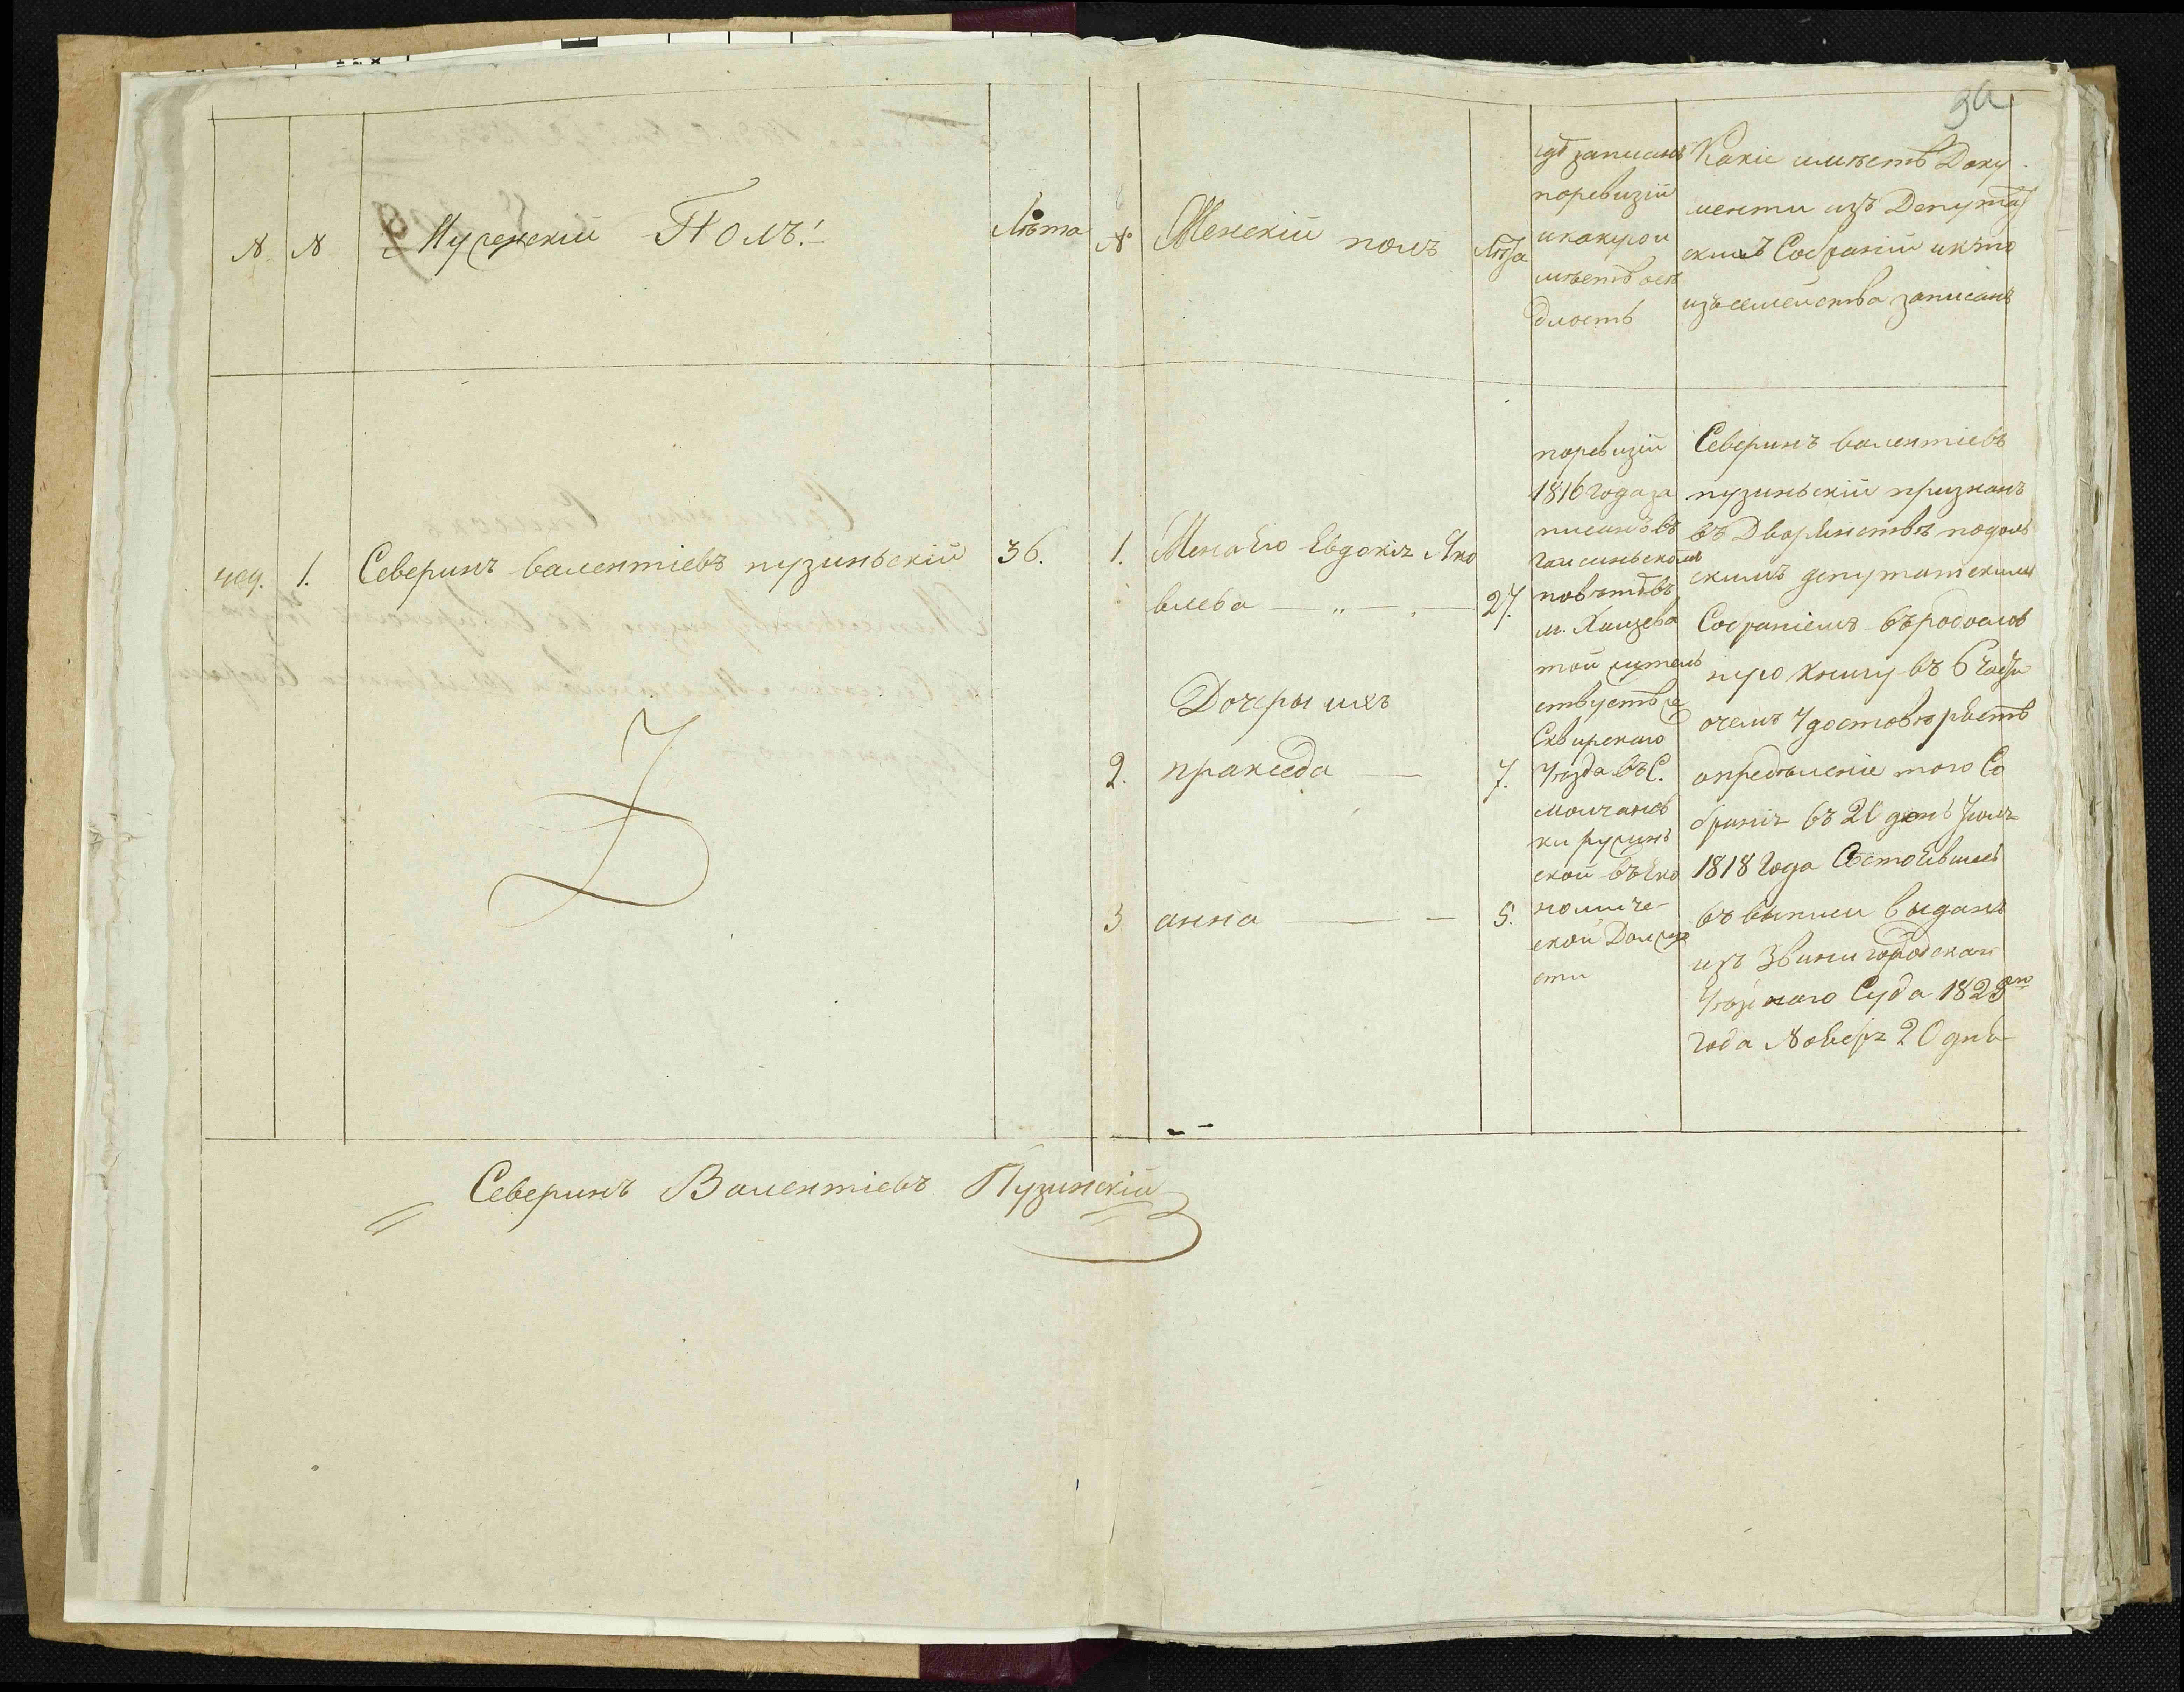 № № Мужескій Полъ: Лѣта № Женскій полъ Лѣта
гдѣ записанъ
поревизіи
икакуюи
мѣетъ осѣ
длость
Какіе имѣетъ Доку
менти изъ Депутат
скихъ Собраніи икто
изъсемейства записанъ
1. Северинъ валентіевъ пузиньскій 36.
1. Жена Его Евдокія Яко
влева 27.
Дочеры ихъ
2. пракседа 7.
3 анна 5.
поревизіи
1816 года за
писанъ въ
гаисиньскомъ
повѣтѣ въ
м. Хащева
той жител
ствуетъ же
Сквирскаго
уѣзда въ С.
молчанов
ки ружин
ской въ Эко
номиче-
ской Должно
сти
Северинъ валентіевъ
пузиньскій признанъ
въ Дворянствѣ подоль
скимъ депутатскимъ
Собраніемъ въродослов
ную Книгу въ 6 часть
очемъ удостовѣряетъ
определеніе того Со
бранія въ 20 день Іюля
1818 Года Состоявшееся
въ выписи выданъ
изъ Звинигородскаго
Уѣзднаго Суда 1823го
года Новеря 20 дня
Северинъ Валентіевъ Пузинскій